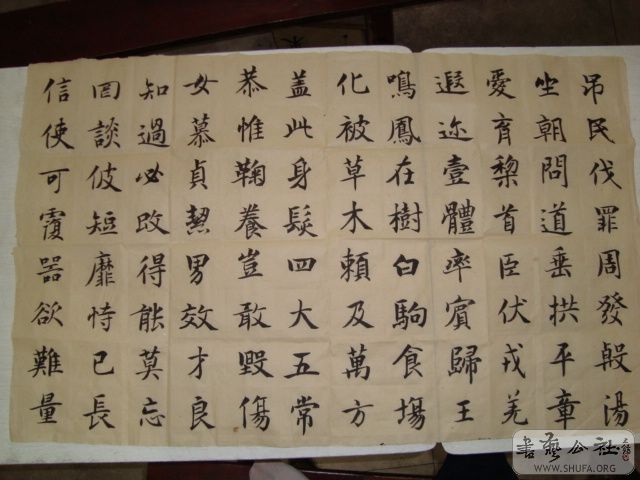 吊民伐罪周發殷湯
坐朝問道垂拱平章
愛育黎首臣伏戎羌
遐迩壹體率賓歸王
鳴鳳在樹白駒食場
化被草木賴及萬方
盖此身髮四大五常
恭惟鞠養豈敢毀傷
女慕貞絜男效才良
知過必改得能莫忘
罔談彼短靡恃已長
信使可覆器欲難量
書藝公社
WWW.SHUFA.ORG